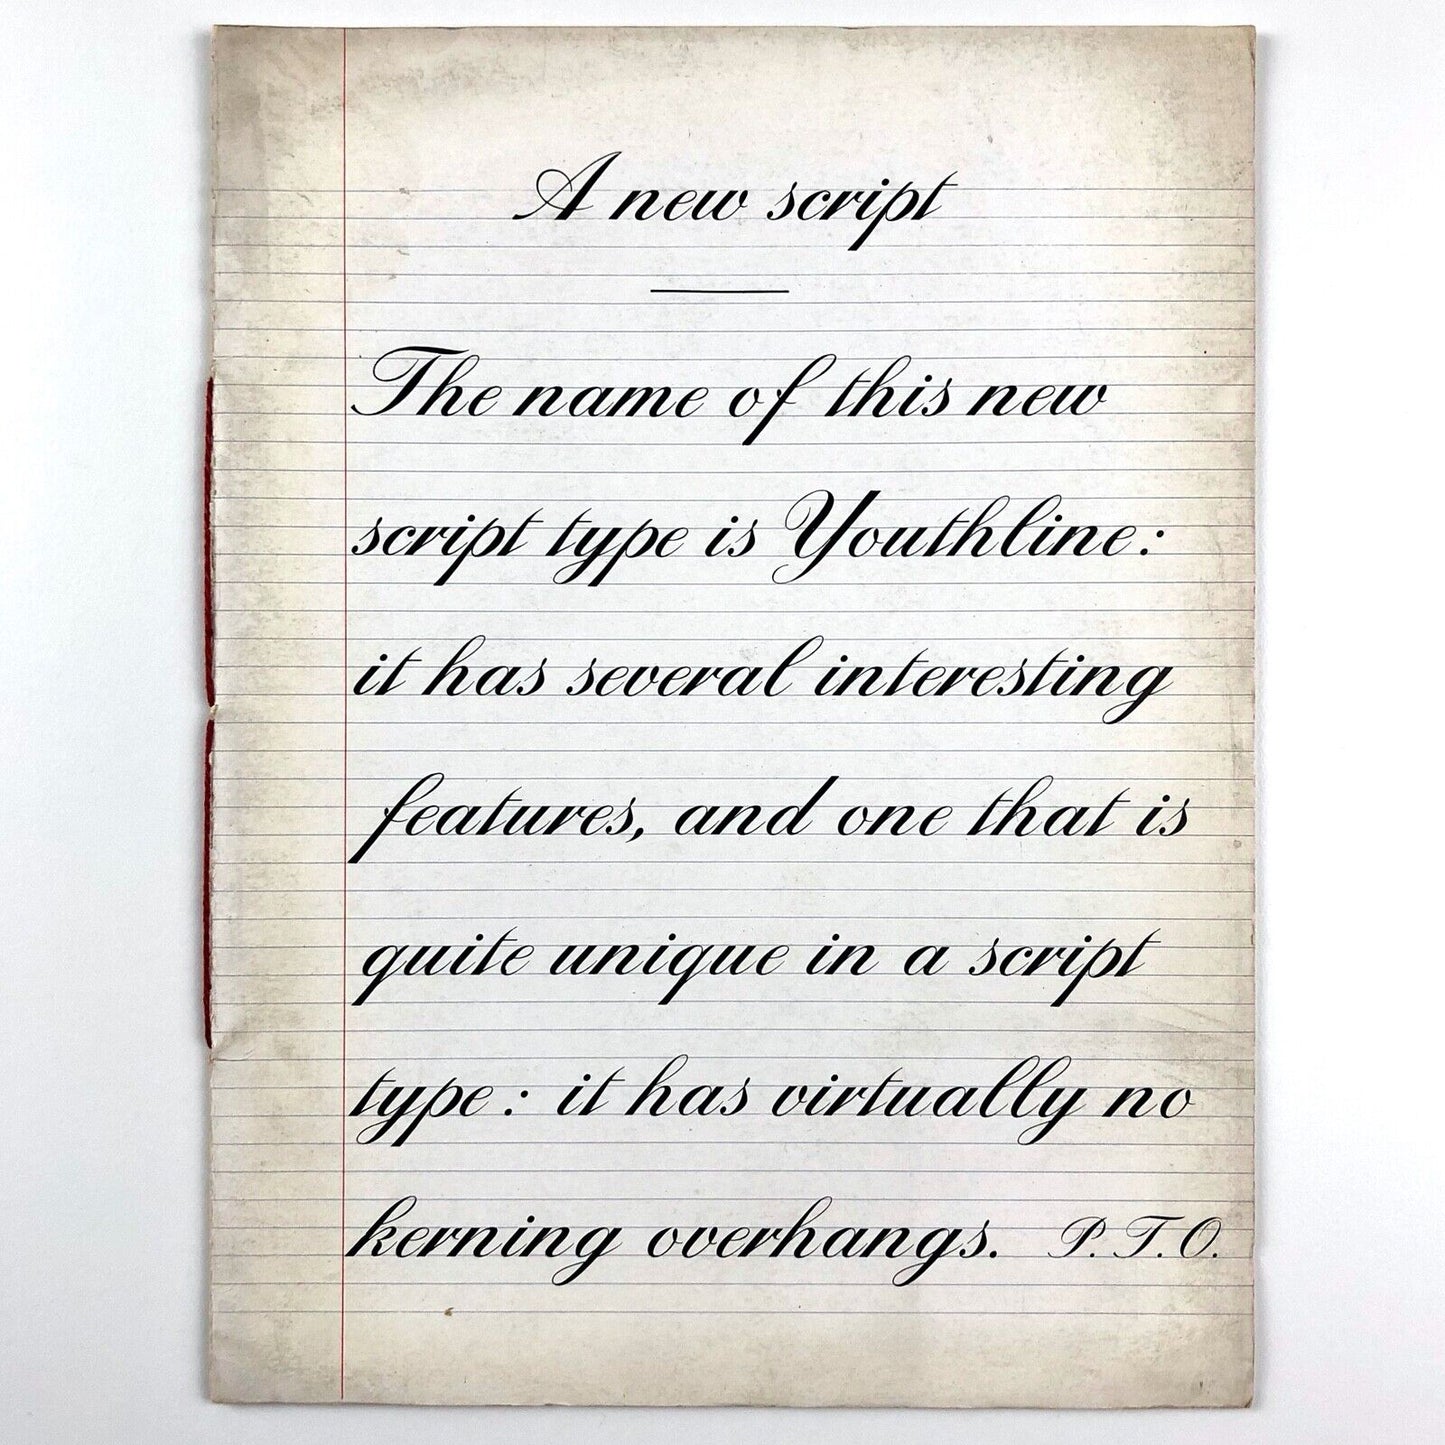 A new script
The name of this new
script type is Youthline:
it has several interesting
features, and one that is
quite unique in a script
type: it has virtually no
kerning overhangs. P. T. O.